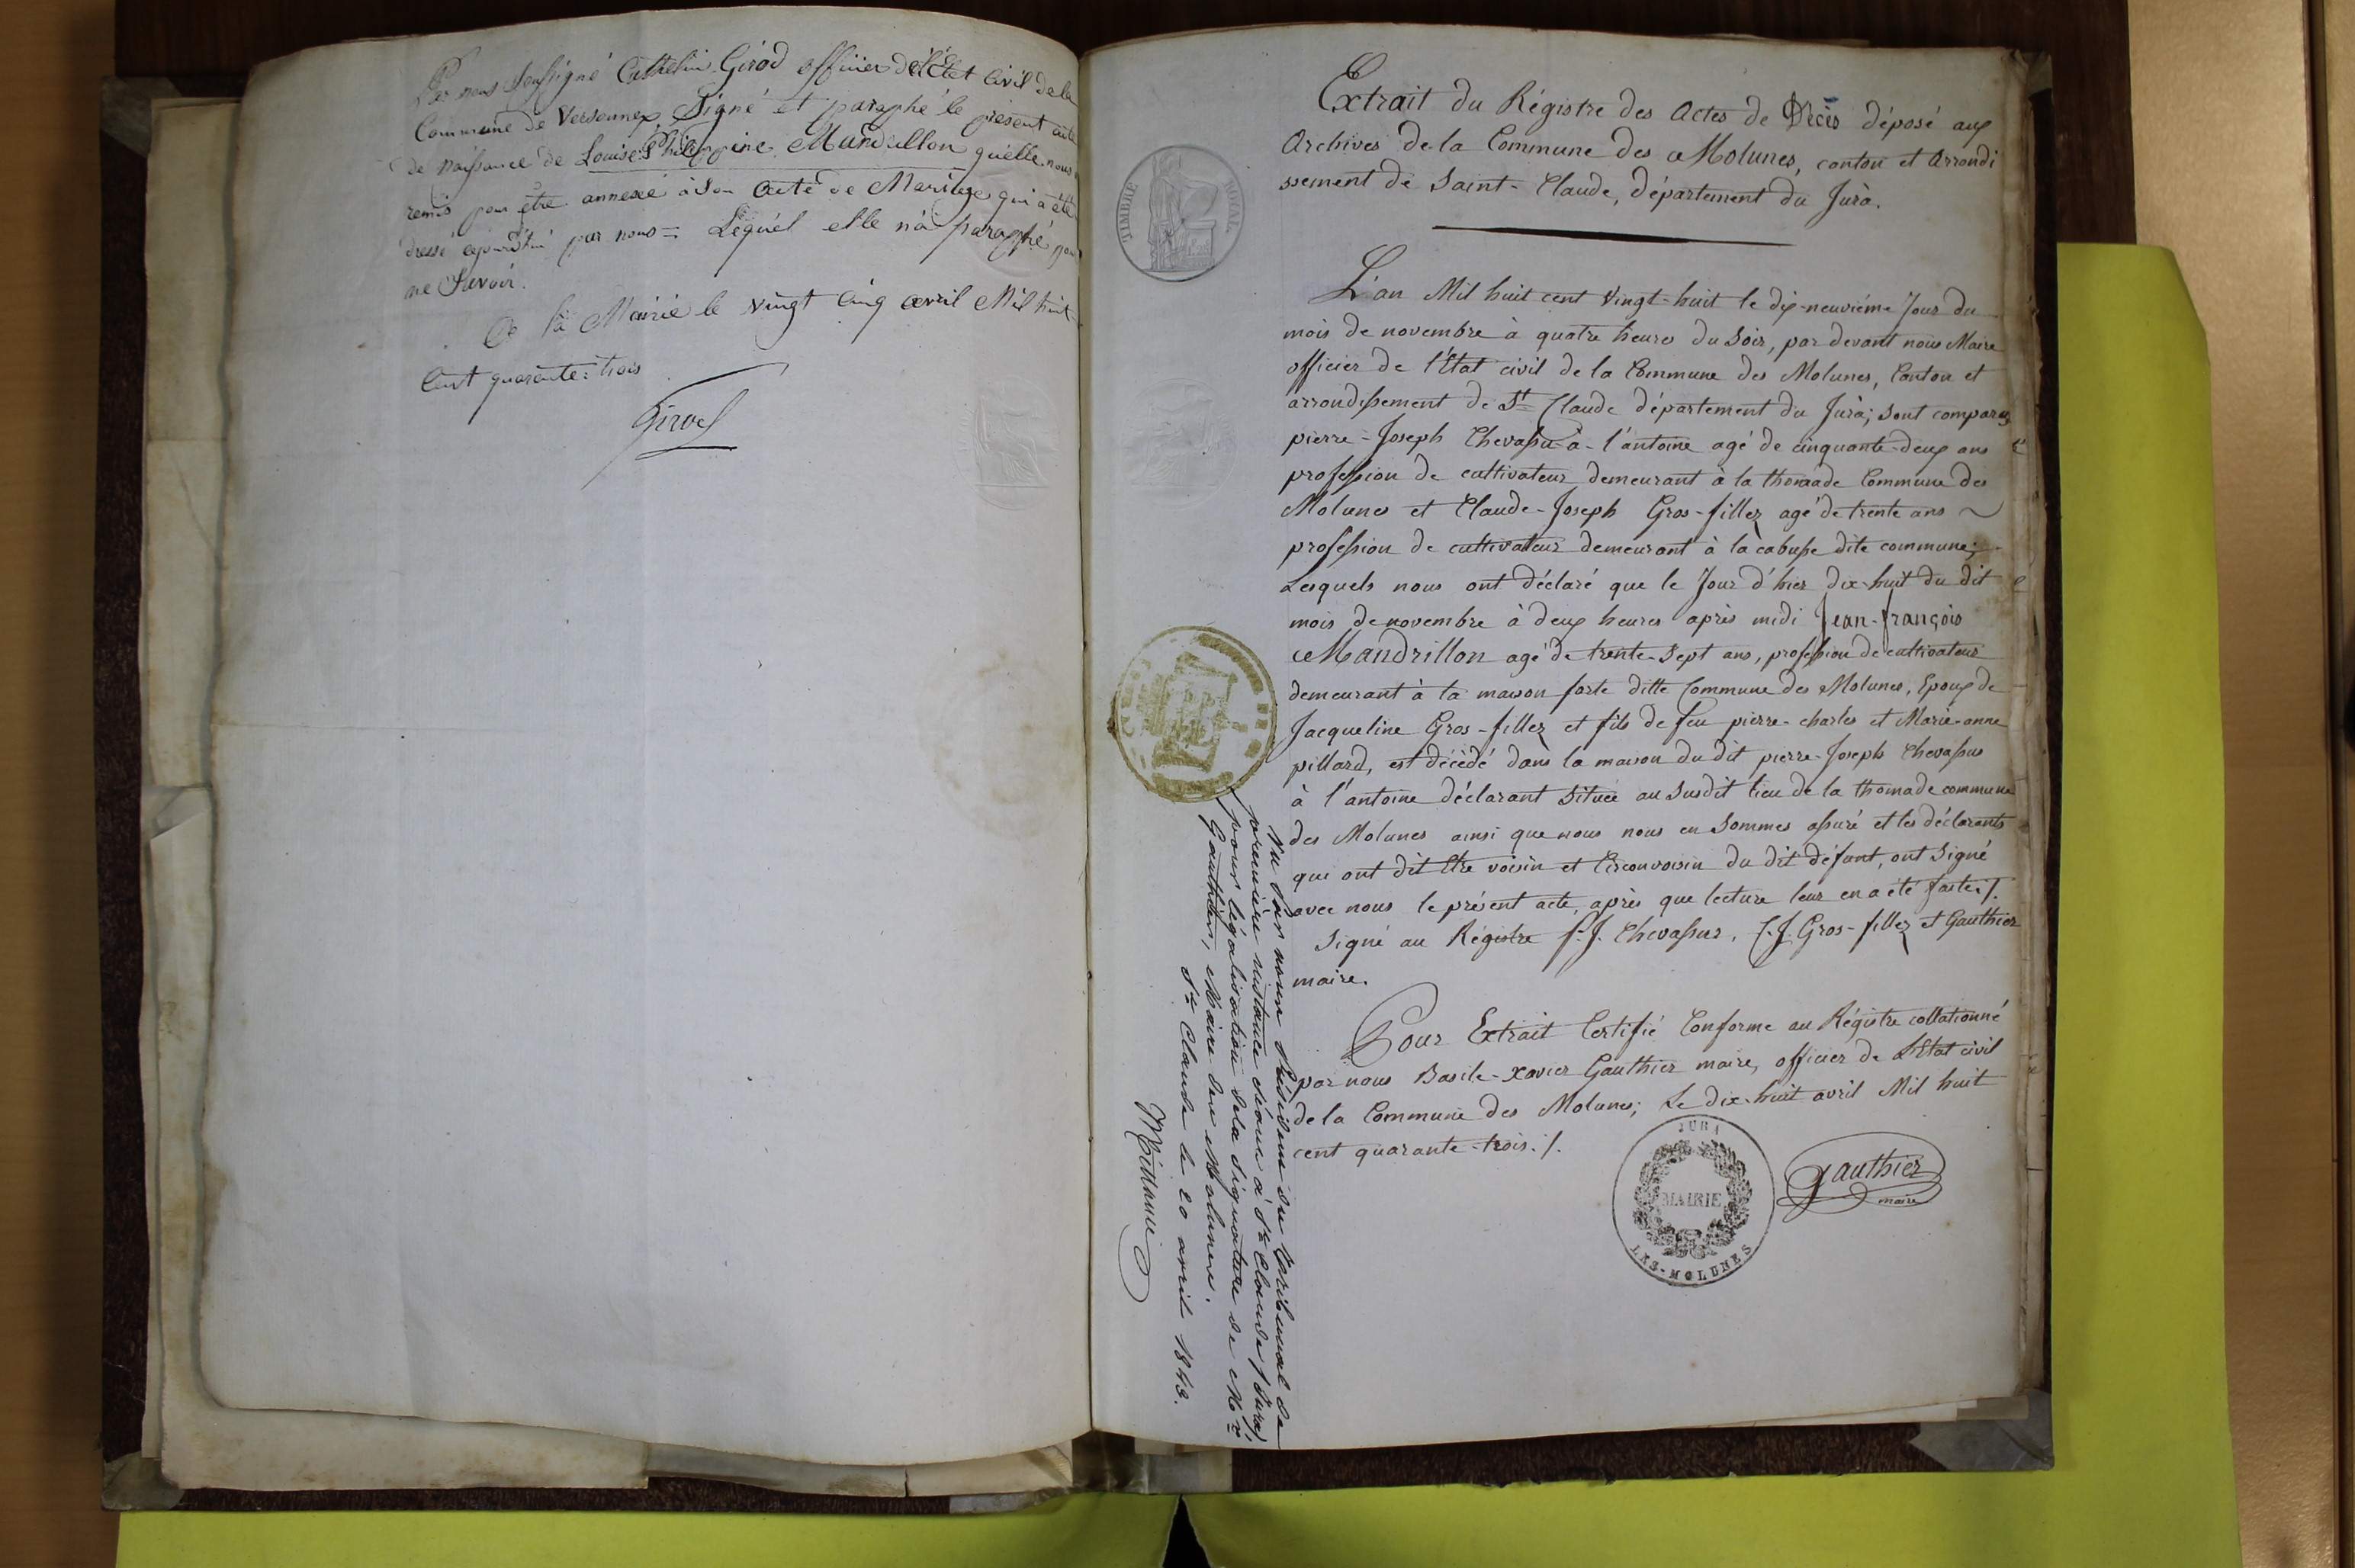 Par nous soussigné Cathelin Girod officier de l'État Civil de la
Commune de Versonnex, Signé et paraphé le présent acte
de naissance de Louise Philippine Mandrillon qu'elle nous a
remis pour être annexé à son acte de Mariage qui a été
dressé aujourd'hui par nous = Lequel elle n'a paraphé pour
ne Savoir.
A la Mairie le vingt cinq avril Mil huit
Cent quarante-trois
Girod
Extrait du Régistre des Actes de Décès déposé aux
Archives de la Commune des Molunes, canton et Arrondi
ssement de Saint-Claude, département du Jura.
TIMBRE ROYAL
L'an Mil huit cent vingt-huit le dix-neuvième Jour du
mois de novembre à quatre heures du Soir, par devant nous Maire
officier de l'État civil de la Commune des Molunes, Canton et
arrondissement de St Claude département du Jura; sont comparus
pierre-Joseph Chevassu-à-l'antoine agé de cinquante-deux ans
profession de cultivateur demeurant à la thomade Commune des
Molunes et Claude-Joseph Gros-fillez agé de trente ans
profession de cultivateur demeurant à la cabusse dite commune;
Lesquels nous ont déclaré que le Jour d'hier dix-huit du dit
mois de novembre à deux heures après midi Jean-françois
Mandrillon agé de trente-Sept ans, profession de cultivateur
demeurant à la maison forte ditte Commune des Molunes, Epoux de
Jacqueline Gros-fillez et fils de feu pierre-charles et Marie-anne
pillard, est décédé dans la maison du dit pierre-Joseph Chevassus
à l'antoine déclarant Située au Susdit lieu de la thomade commune
des Molunes ainsi que nous nous en Sommes assuré et les déclarants
qui ont dit Etre voisin et Circonvoisin du dit défunt, ont Signé
avec nous le présent acte, après que lecture leur en a été faite ./.
Signé au Régistre P.J. Chevassus, C.J. Gros-fillez et Gauthier
maire.
Pour Extrait Certifié Conforme au Régistre collationné
par nous Basile-Xavier Gauthier maire, officier de L'Etat civil
de la Commune des Molunes; Le dix-huit avril Mil huit
cent quarante-trois ./.
JURA
MAIRIE
LES-MOLUNES
Gauthier
maire
Vu par nous Président du tribunal de
première instance séant à St Claude (Jura)
pour légalisation de la signature de Mr
Gauthier, Maire des Molunes.
St Claude le 20 avril 1843.